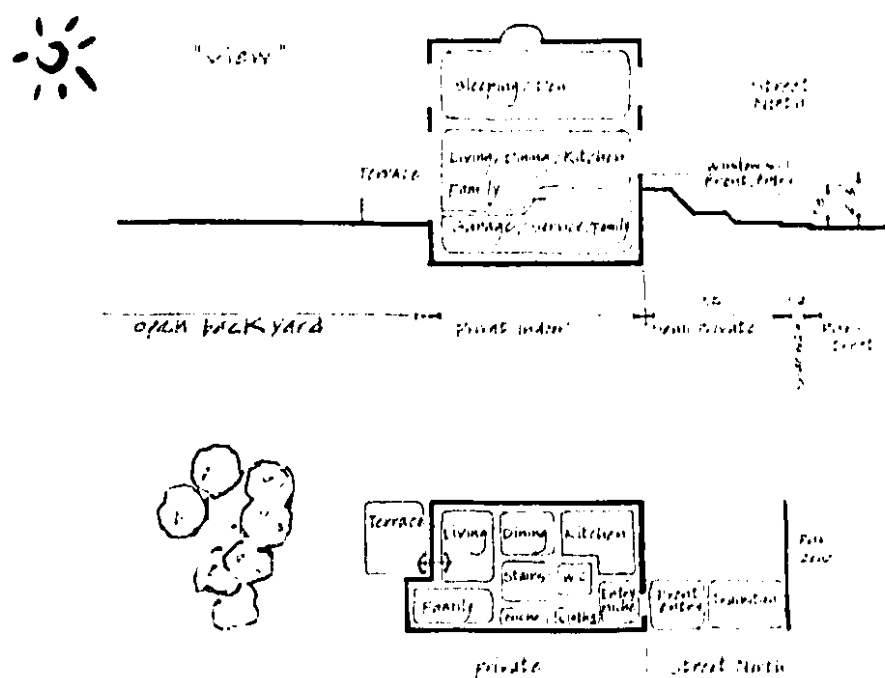 "view"
Sleeping / Den
Street
North
Living, Dining, Kitchen
Family
Terrace
Front Entry
Garage / Service / Family
open back yard
Private Indoor
Semi Private
Street
Terrace
Living
Dining
Kitchen
Stairs
W.C
Family
Niche
Cloths
Entry
niche
Front
entry
Transition
private
Street North